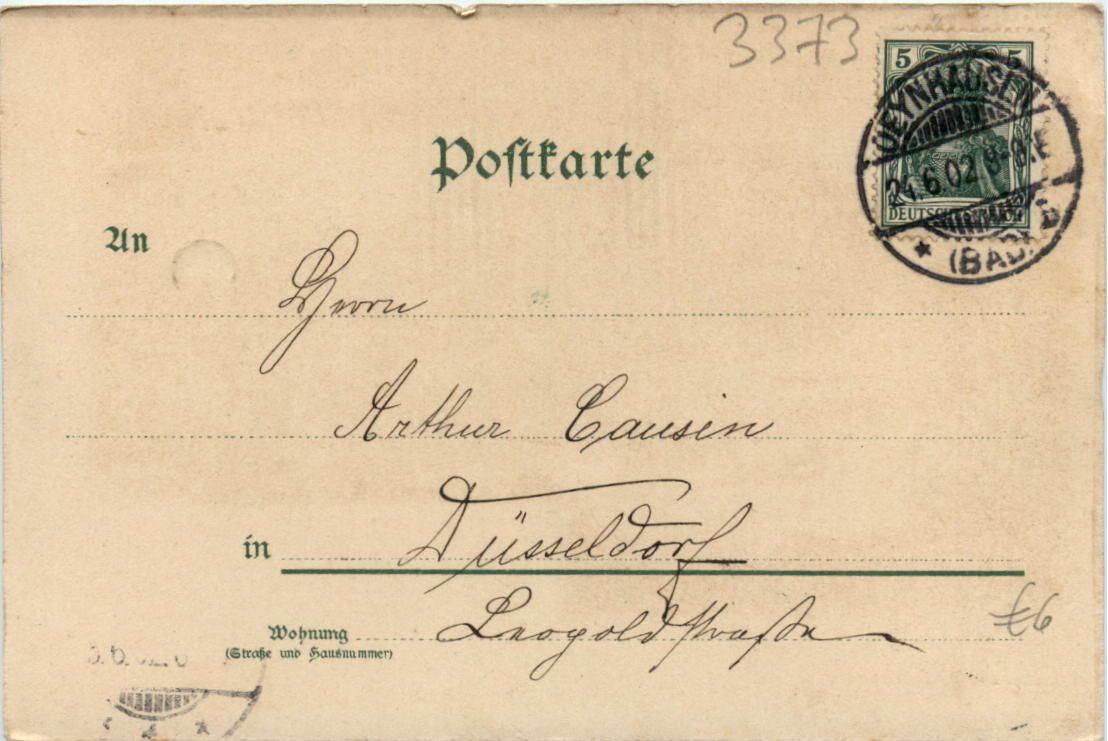 3373
5 5
OEYNHAUSEN
24.6.02.8-9N
DEUTSCHES REICH
* (BAD)
Postkarte
An
Herrn
Arthur Causin
in Düsseldorf
Wohnung Leopoldstraße
(Straße und Hausnummer)
£6